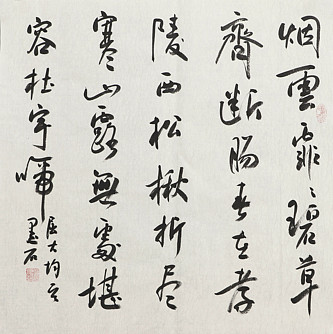 烟雲霏々碧草
齊断腸春在孝
陵西松楸折尽
寒山露無處堪
容杜宇啼
屈大均
墨石